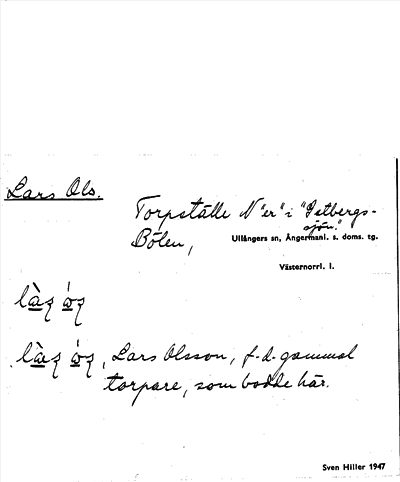 Lars Ols.
Torpställe N"er" i "Östbergs-
sjön."
Bölen,
Ullångers sn, Ångermanl. s. doms. tg.
Västernorrl. l.
làʒ ȯ́ʒ
làʒ ȯ́ʒ, Lars Olsson, f.d. gammal
torpare, som bodde här.
Sven Hiller 1947